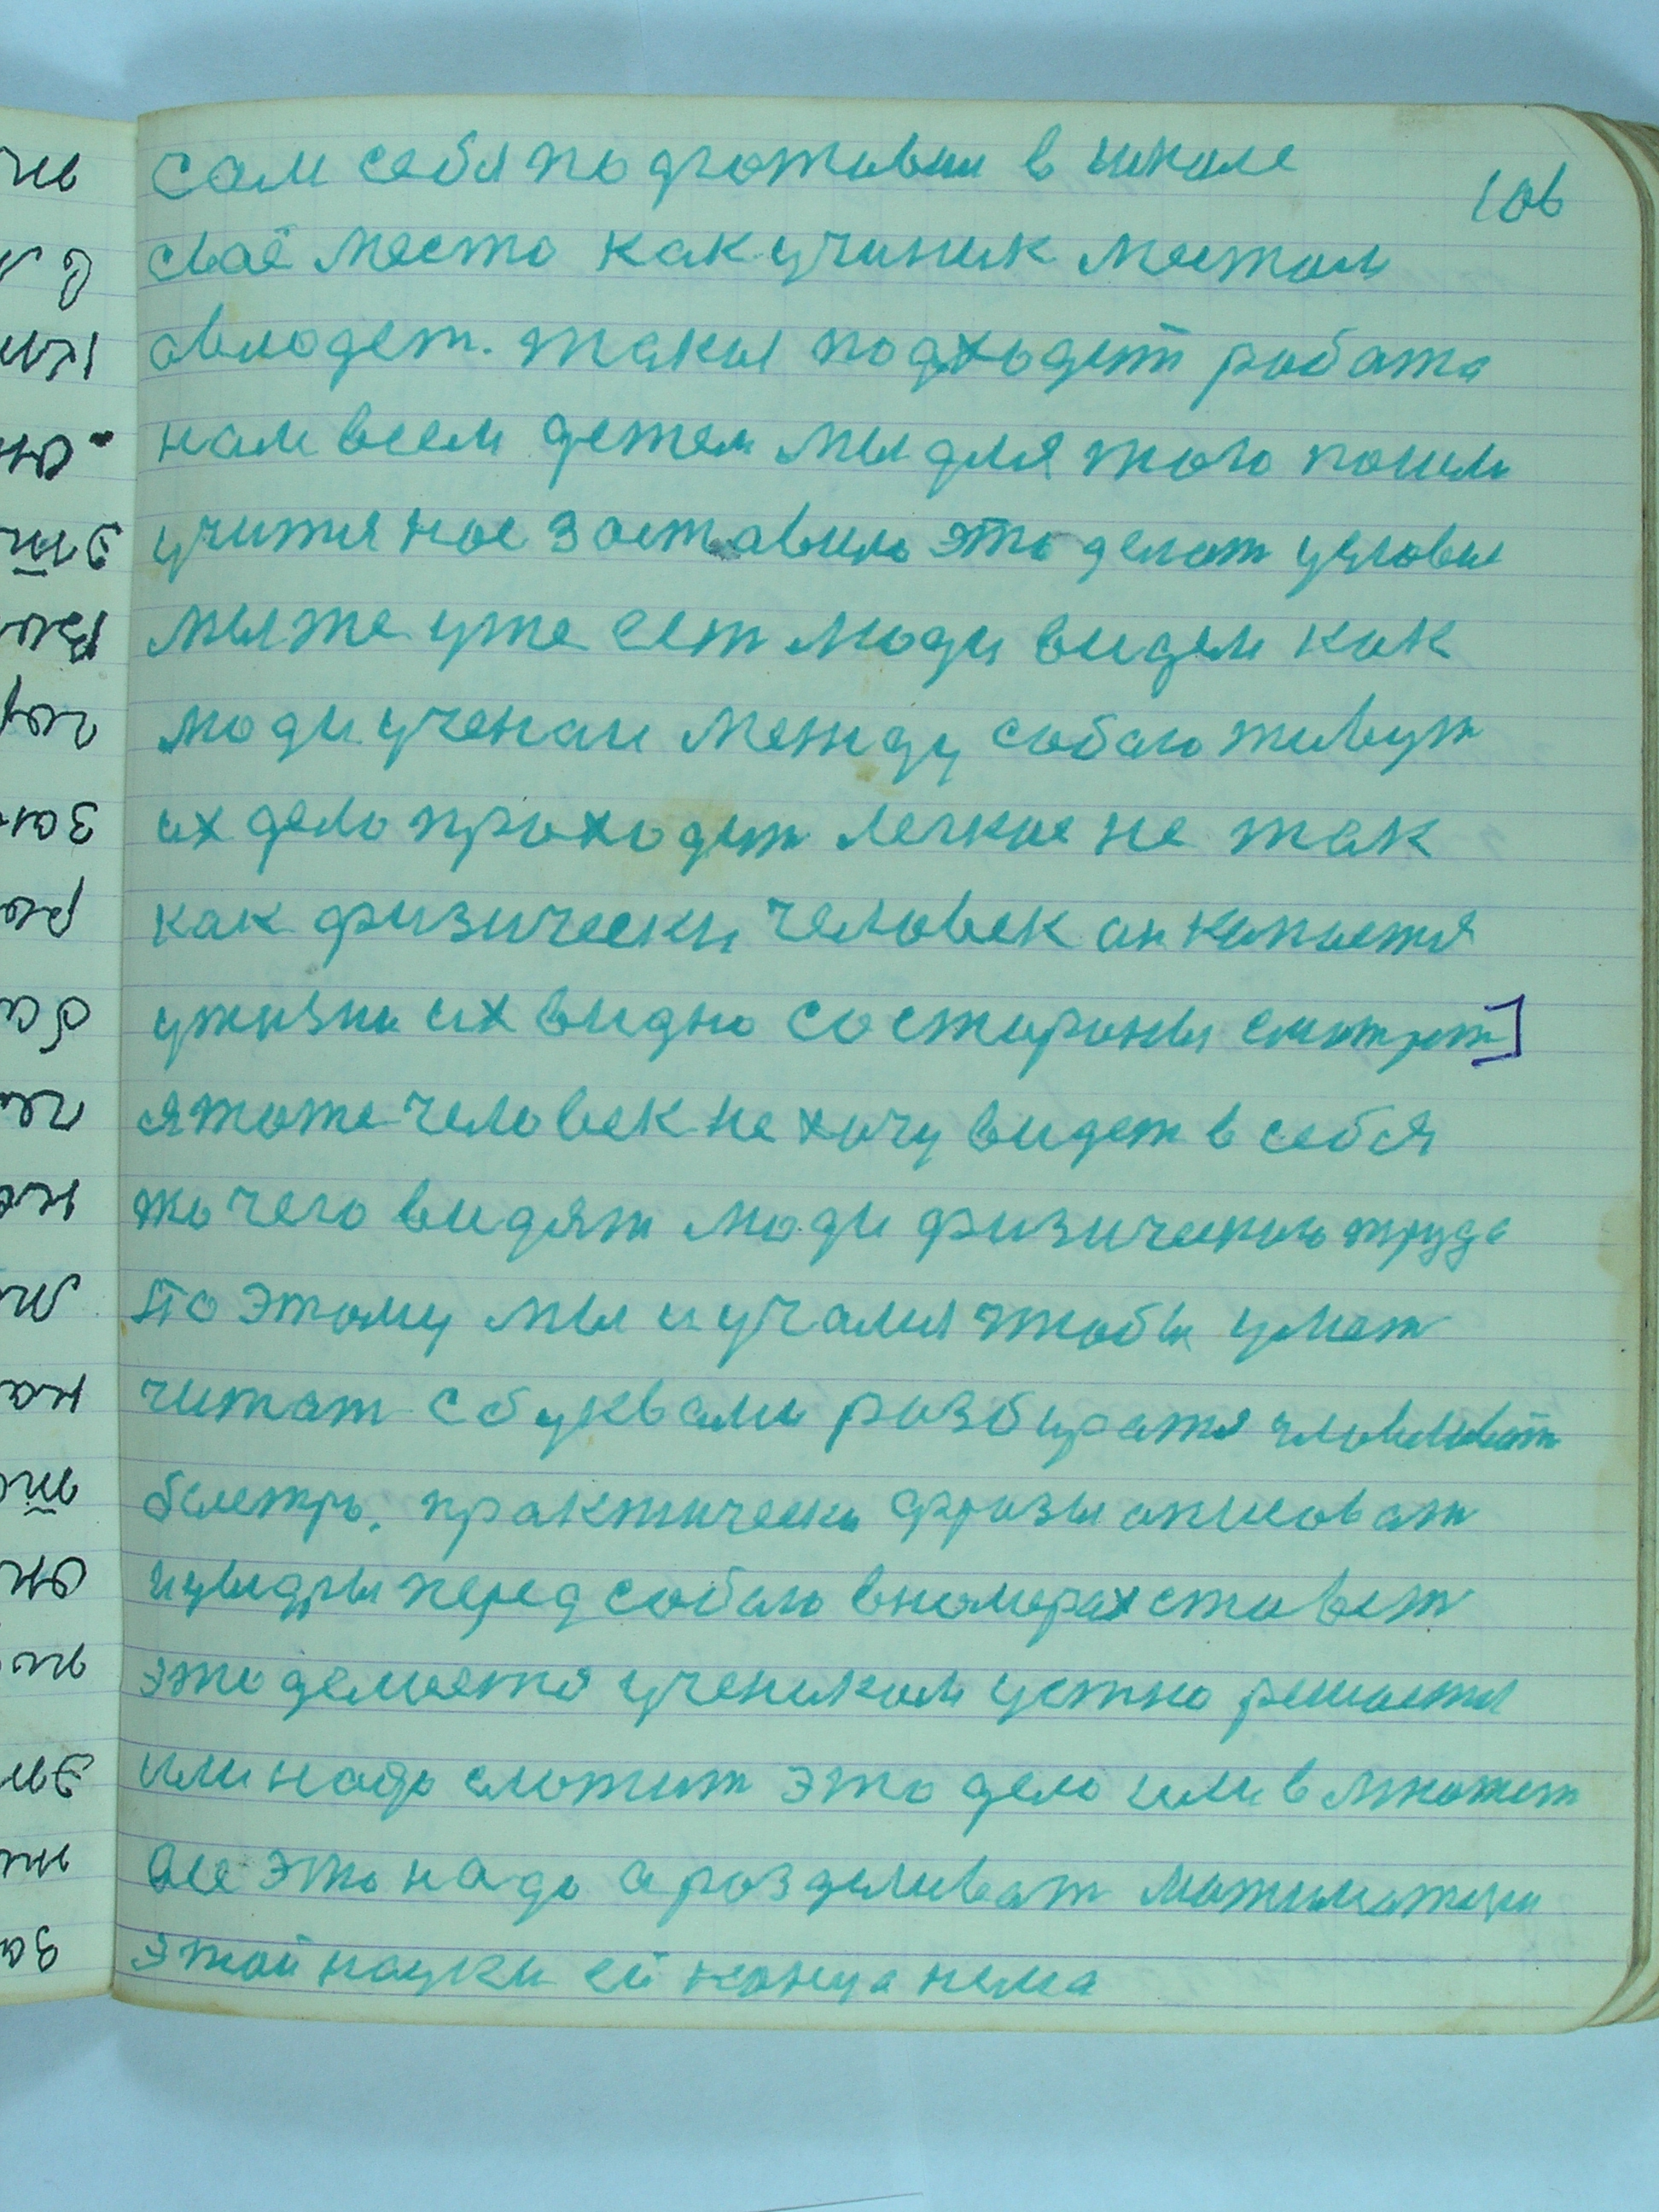 106
сам себя подготовил в школе
своё место как учиник местом
овлодет. такая подходит работа
нам всем детям мы для того пошли
учится нас заставило это делат условия
мы же уже ест люди видем как
люди ученаи между собою живут
их дело проходит легкое не так
как физически человек он копается
у жизни их видно со стороны смотрет]
я тоже человек не хочу видет в себя
то чего видят люди физического труда
По этому мы и учамся чтобы умет
читат с буквами разбиратя
практически фразы описоват
и цыфры перед собою в номерах ставит
это делается учеником устно решается
или надо сложит это дело или в множит
все это надо а розделиват
этой науки ей конца нема